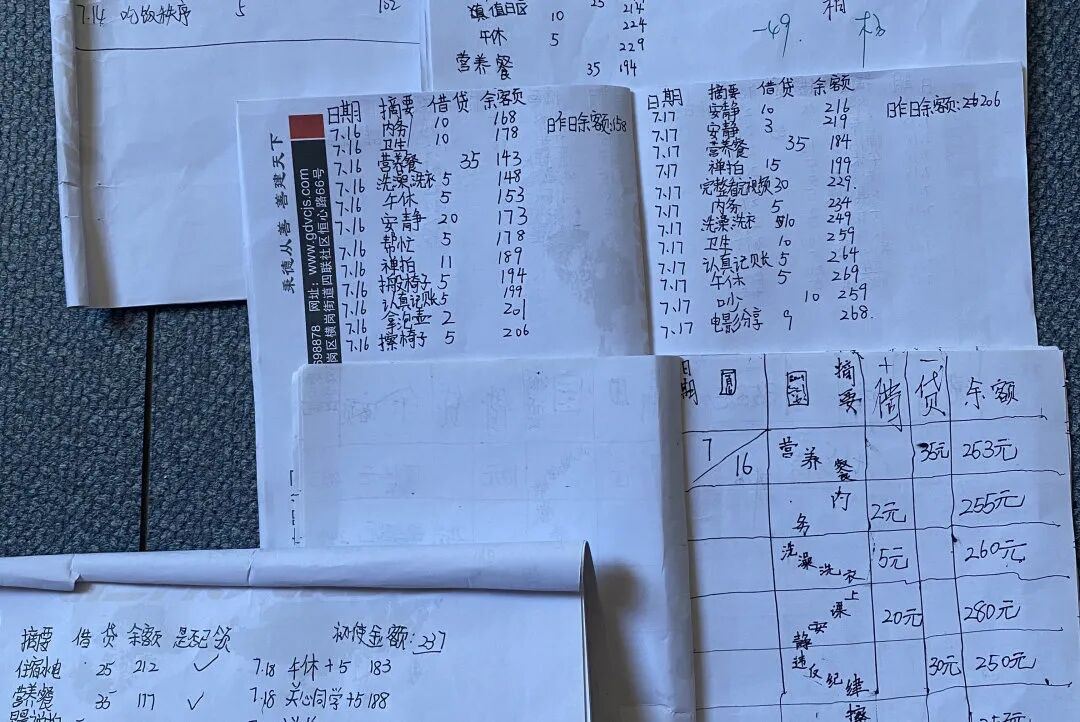 7.14 吃饭秩序 5 102
25 214
值日区 10 224
午休 5 229
营养餐 35 194
-49.
秉德从善 善建天下
698878 网址：www.gdvcjs.com
岗区横岗街道四联社区恒心路66号
日期 摘要 借 贷 余额页 昨日余额:158
7.16 内务 10 168
7.16 卫生 10 178
7.16 营养餐 35 143
7.16 洗澡洗衣 5 148
7.16 午休 5 153
7.16 安静 20 173
7.16 帮忙 5 178
7.16 禅拍 11 189
7.16 搬椅子 5 194
7.16 认真记账 5 199
7.16 拿泡壶 2 201
7.16 擦椅子 5 206
日期 摘要 借 贷 余额 昨日余额:26206
7.17 安静 10 216
7.17 安静 3 219
7.17 营养餐 35 184
7.17 禅拍 15 199
7.17 完整看完视频 30 229
7.17 内务 5 234
7.17 洗澡洗衣 10 249
7.17 卫生 10 259
7.17 认真记账 5 264
7.17 午休 5 269
7.17 口少 10 259
7.17 电影分享 9 268
日期 摘要 + 借 - 贷 余额
7/16 营养餐 35元 253元
内务 2元 255元
洗澡洗衣 5元 260元
上课安静 20元 280元
违反纪律 30元 250元
擦
摘要 借 贷 余额 是否记领 初使金额:237
住宿水电 25 212 ✓ 7.18 午休 +5 183
营养餐 35 177 ✓ 7.18 关心同学 +5 188